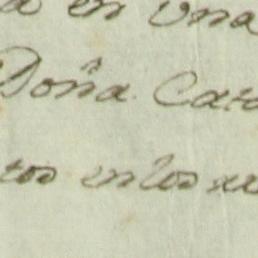 en una
Doña Cat
tos en los